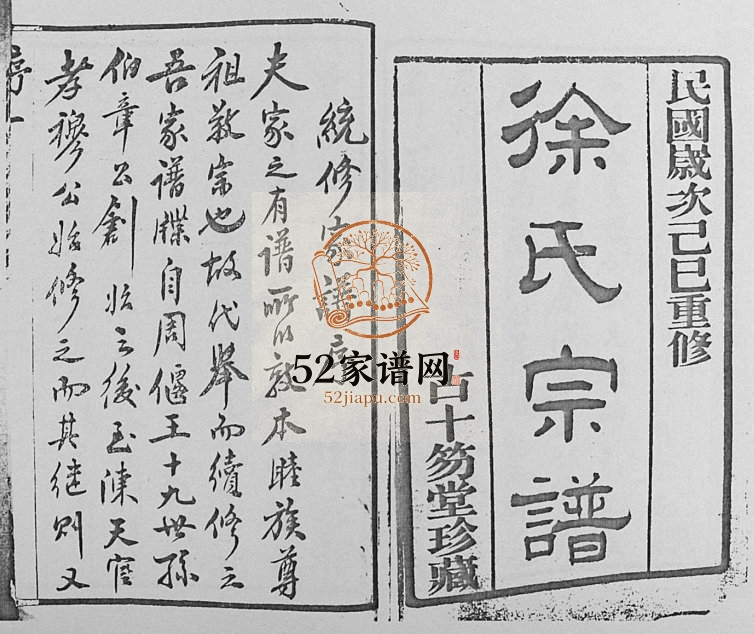 民國歲次己巳重修
徐氏宗譜
占十笏堂珍藏
統修家譜序
夫家之有譜所以敦本睦族尊
祖敬宗也故代舉而續修之
吾家譜牒自周偃王十九世孫
伯章公創始之後至陳天官
孝穆公始修之而其继则又
序一
52家谱网
52jiapu.com